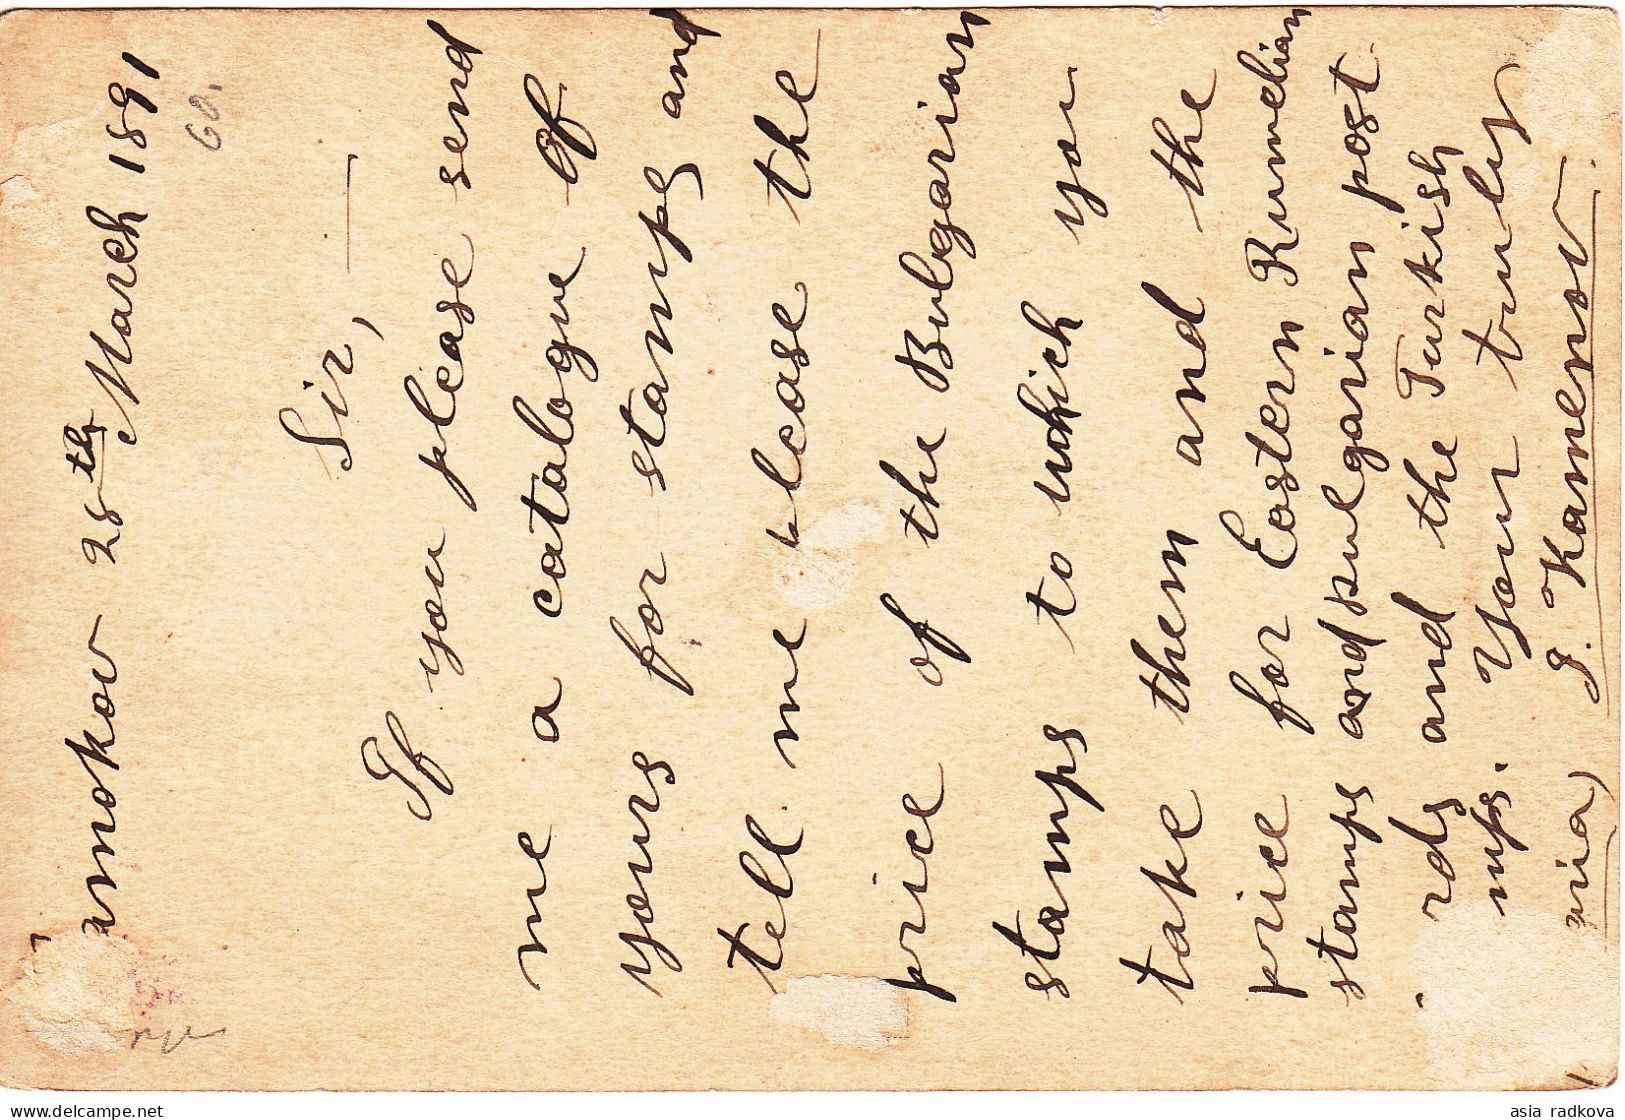 amokov 28th March 1891
60.
Sir,
If you please send
me a catalogue of
yours for stamps and
tell me please the
price of the Bulgarian
stamps to which you
take them and the
price for Eastern Rumelian
stamps and Bulgarian post
rds and the Turkish
mps. Your truly
ria) J. Kamenov.
asia radkova